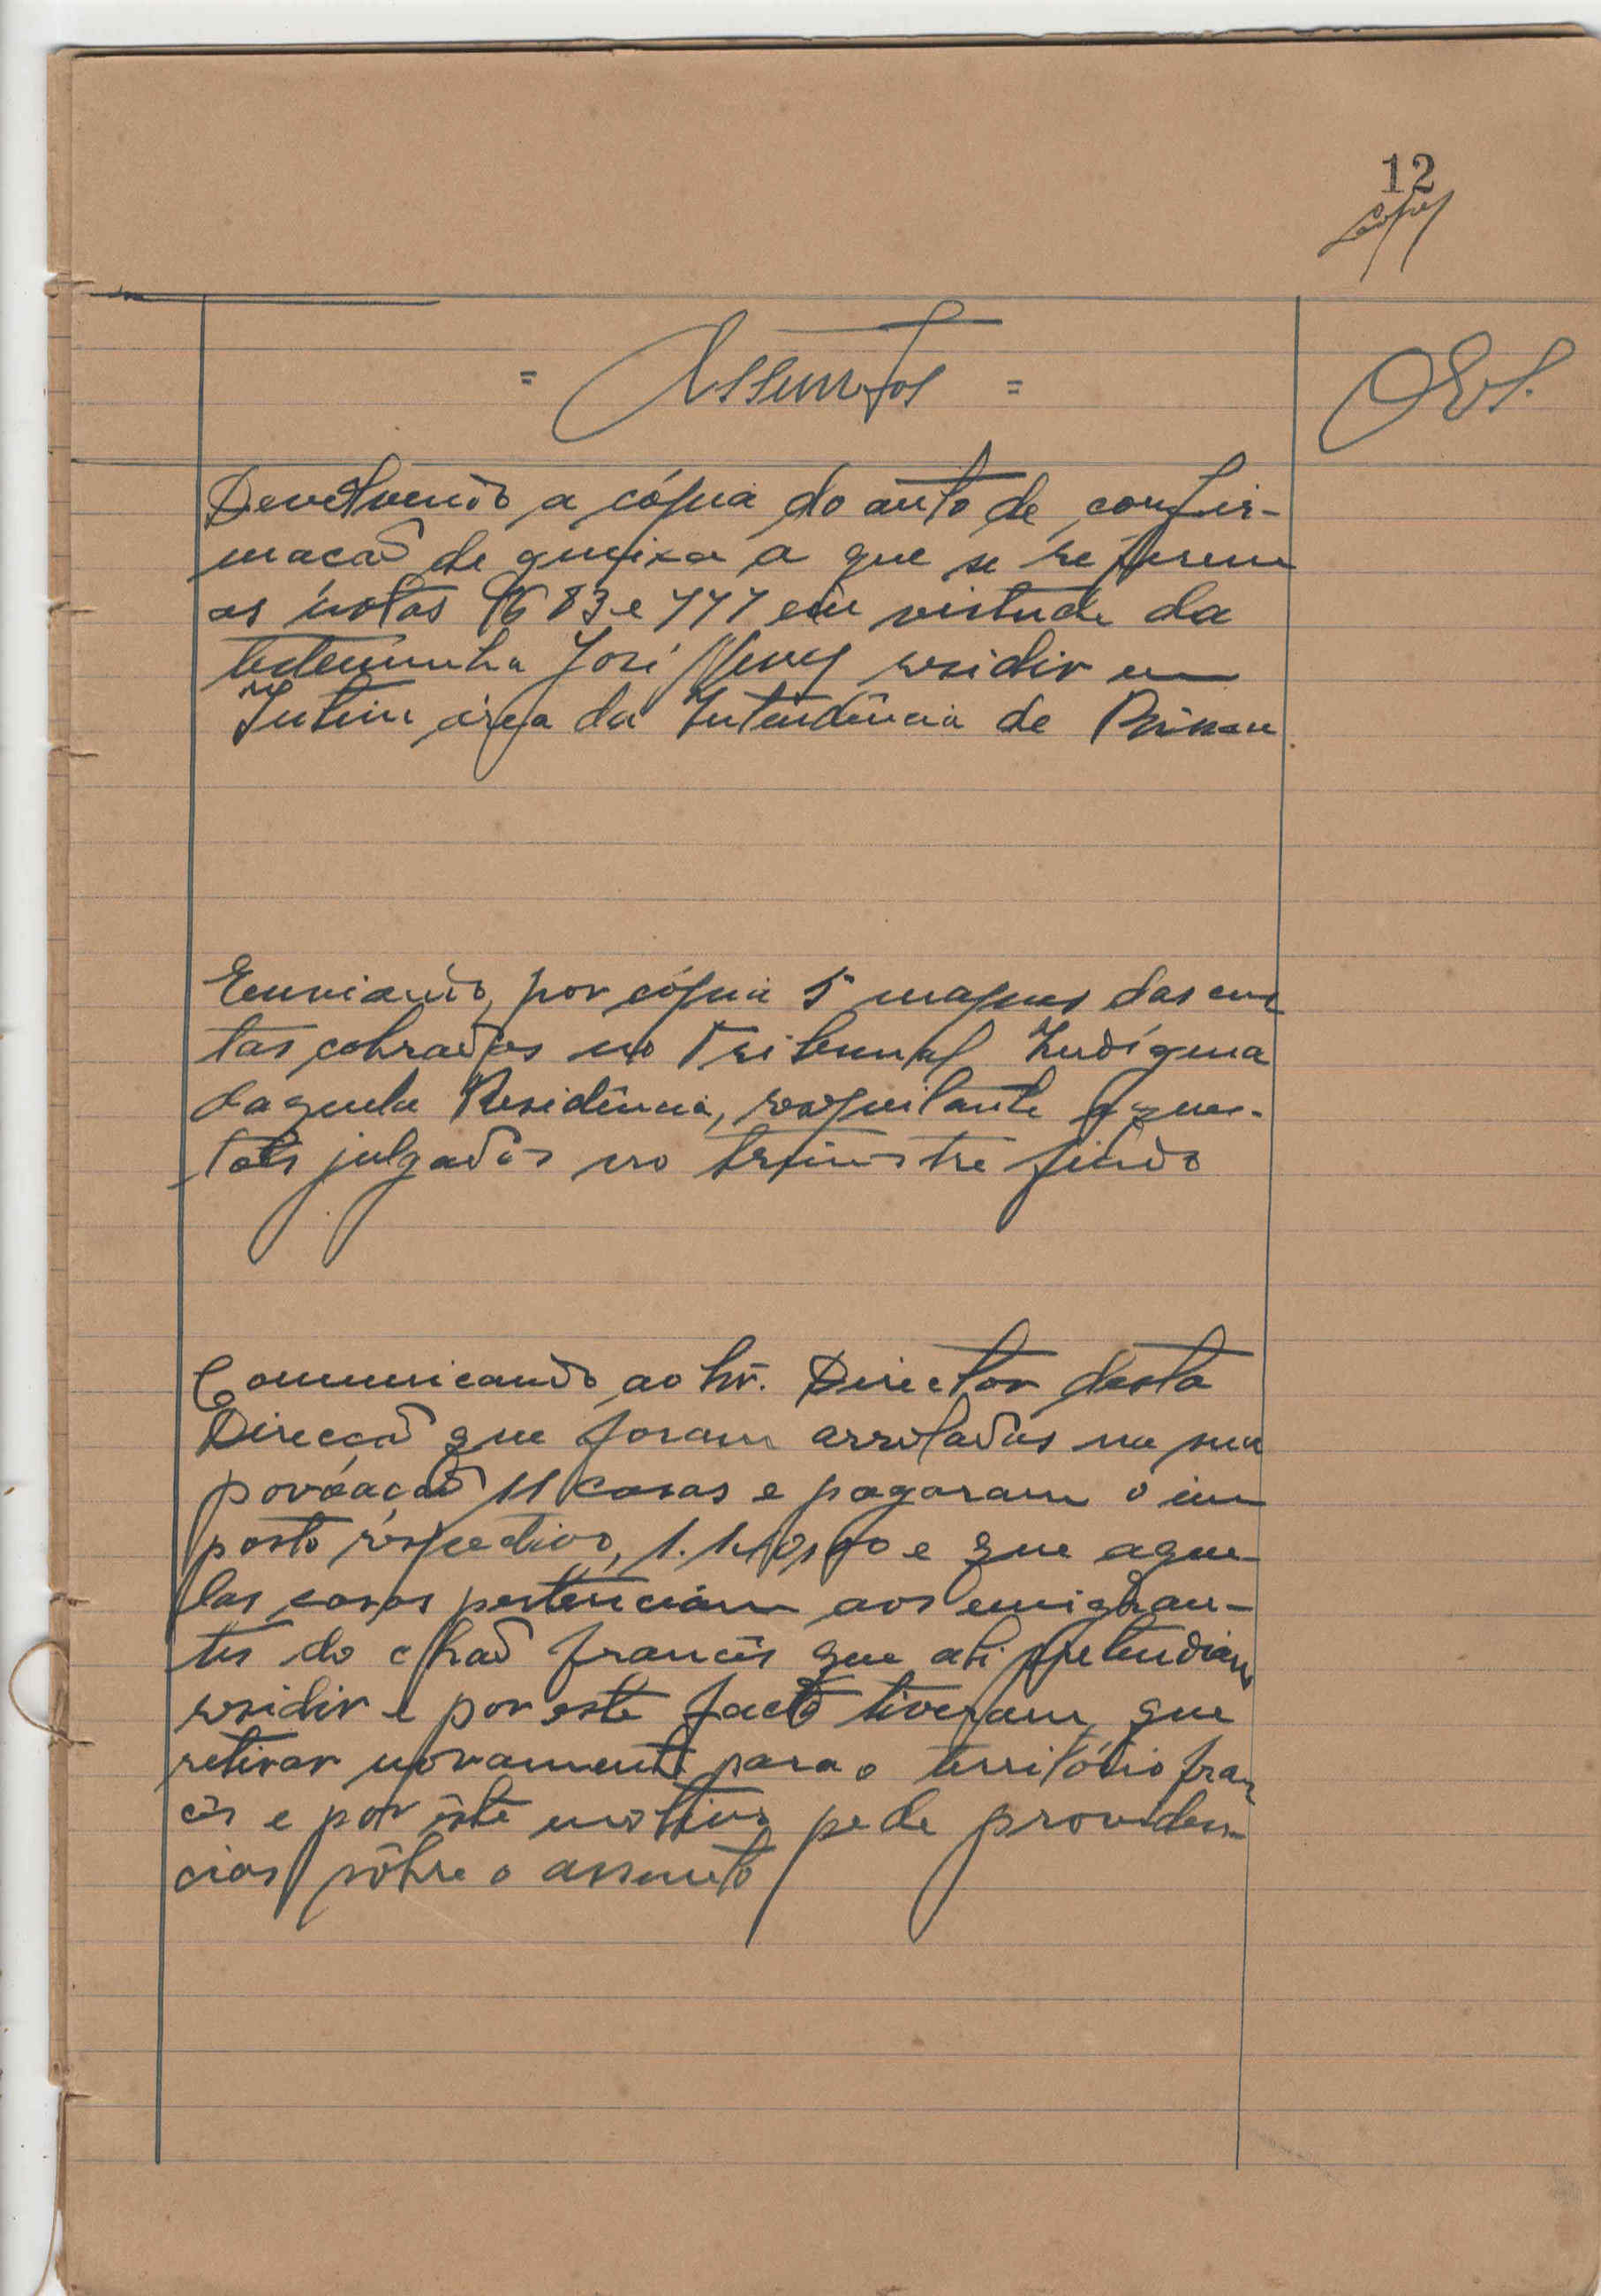 12
= Assuntos =
Obs.
Devolvendo a cópia do auto de confir-
mação de queixa a que se referem
as notas 683 e 777 em virtude da
testemunha José residir em
área da Intendência de Bissau
Enviando, por cópia 5 mapas das cus
tas cobradas no Tribunal Indígena
daquela Residência, respeitante a ques-
tões julgadas no trimestre findo
Comunicando ao Snr. Director desta
Direcção que foram arroladas na sua
povoação 11 casas e pagaram o im
posto respectivo, e que aque
las casas pertenciam aos emigran-
tes do chão francês que ali pretendiam
residir e por este facto tiveram que
retirar novamente para o território fran
cês e por êste motivo pede providen-
cias sôbre o assunto